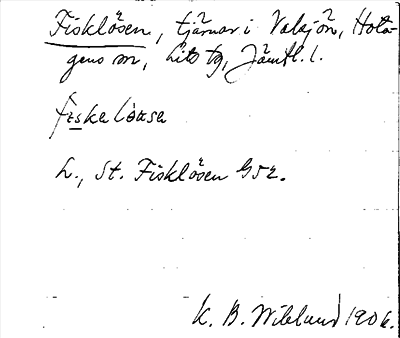 Fisklösen, tjärnar i Valsjön, Hota-
gens sn, Lits tg, Jämtl. l.
fiskelöusa
L., St. Fisklösen G52.
K. B. Wiklund 1906.